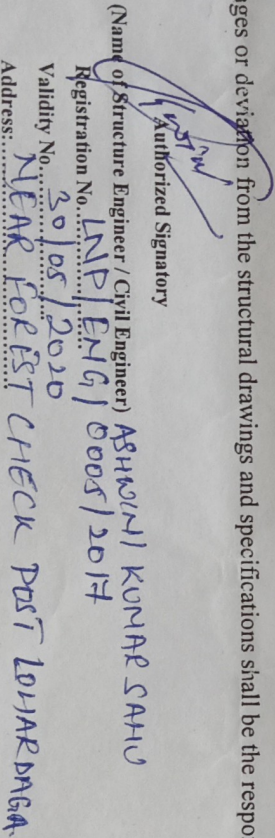 ges or deviation from the structural drawings and specifications shall be the respo
Authorized Signatory
(Name of Structure Engineer / Civil Engineer) ASHWINI KUMAR SAHU
Registration No. LNP/ENG/0005/2017
Validity No. 30/05/2020
Address: NEAR FOREST CHECK POST LOHARDAGA